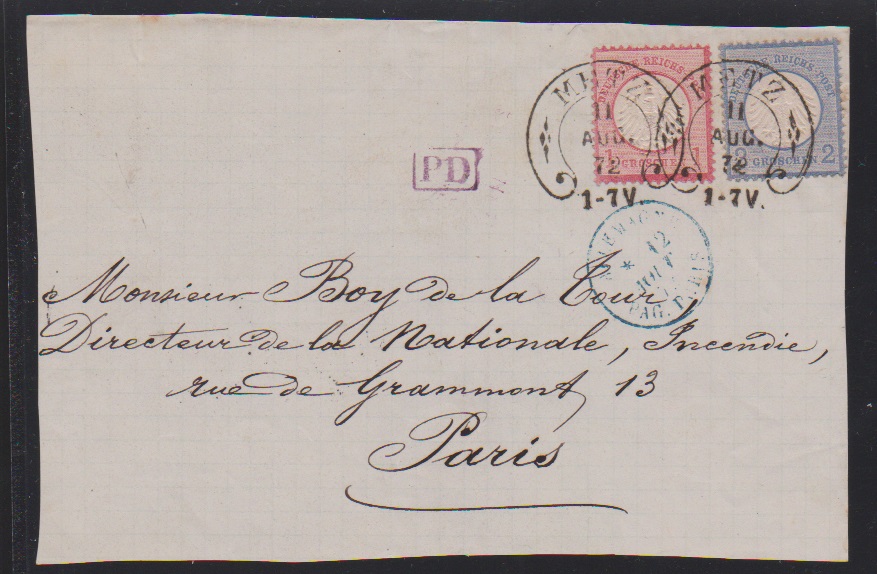 DEUTSCHE REICHS-POST
1 GROSCHEN 1
DEUTSCHE REICHS-POST
2 GROSCHEN 2
METZ
11
AUG.
72
1-7V.
METZ
11
AUG.
72
1-7V.
PD
ALLEMAGNE
12
AOUT
PAG. PARIS
Monsieur Boy de la Tour,
Directeur de la Nationale, Incendie,
rue de Grammont, 13
Paris